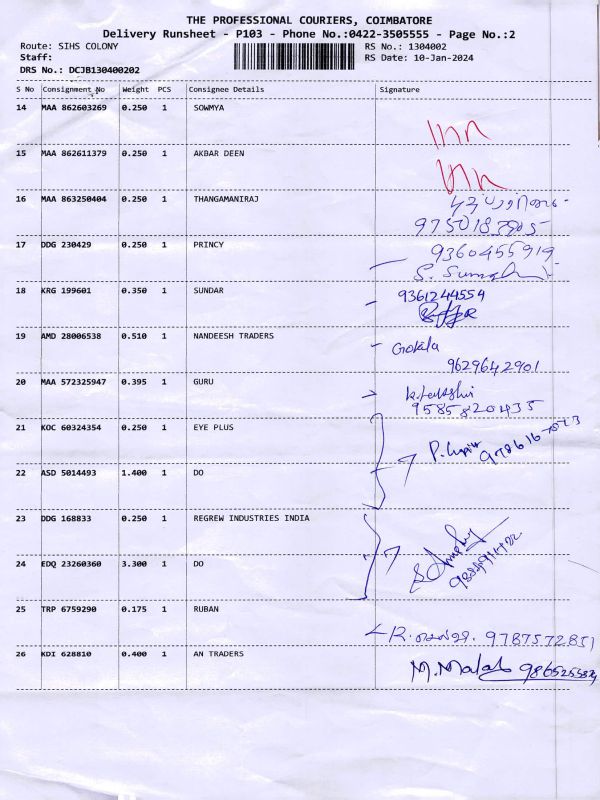 THE PROFESSIONAL COURIERS, COIMBATORE
Delivery Runsheet - P103 - Phone No.:0422-3505555 - Page No.:2
Route: SIHS COLONY
RS No.: 1304002
Staff:
RS Date: 10-Jan-2024
DRS No.: DCJB130400202
S No Consignment No Weight PCS Consignee Details Signature
14 MAA 862603269 0.250 1 SOWMYA
15 MAA 862611379 0.250 1 AKBAR DEEN
16 MAA 863250404 0.250 1 THANGAMANIRAJ
17 DDG 230429 0.250 1 PRINCY
9360455919
18 KRG 199601 0.350 1 SUNDAR
9361244554
19 AMD 28006538 0.510 1 NANDEESH TRADERS
Gokila
9629642901
20 MAA 572325947 0.395 1 GURU
9585820435
21 KOC 60324354 0.250 1 EYE PLUS
22 ASD 5014493 1.400 1 DO
23 DDG 168833 0.250 1 REGREW INDUSTRIES INDIA
24 EDQ 23260360 3.300 1 DO
25 TRP 6759290 0.175 1 RUBAN
9787572851
26 KDI 628810 0.400 1 AN TRADERS